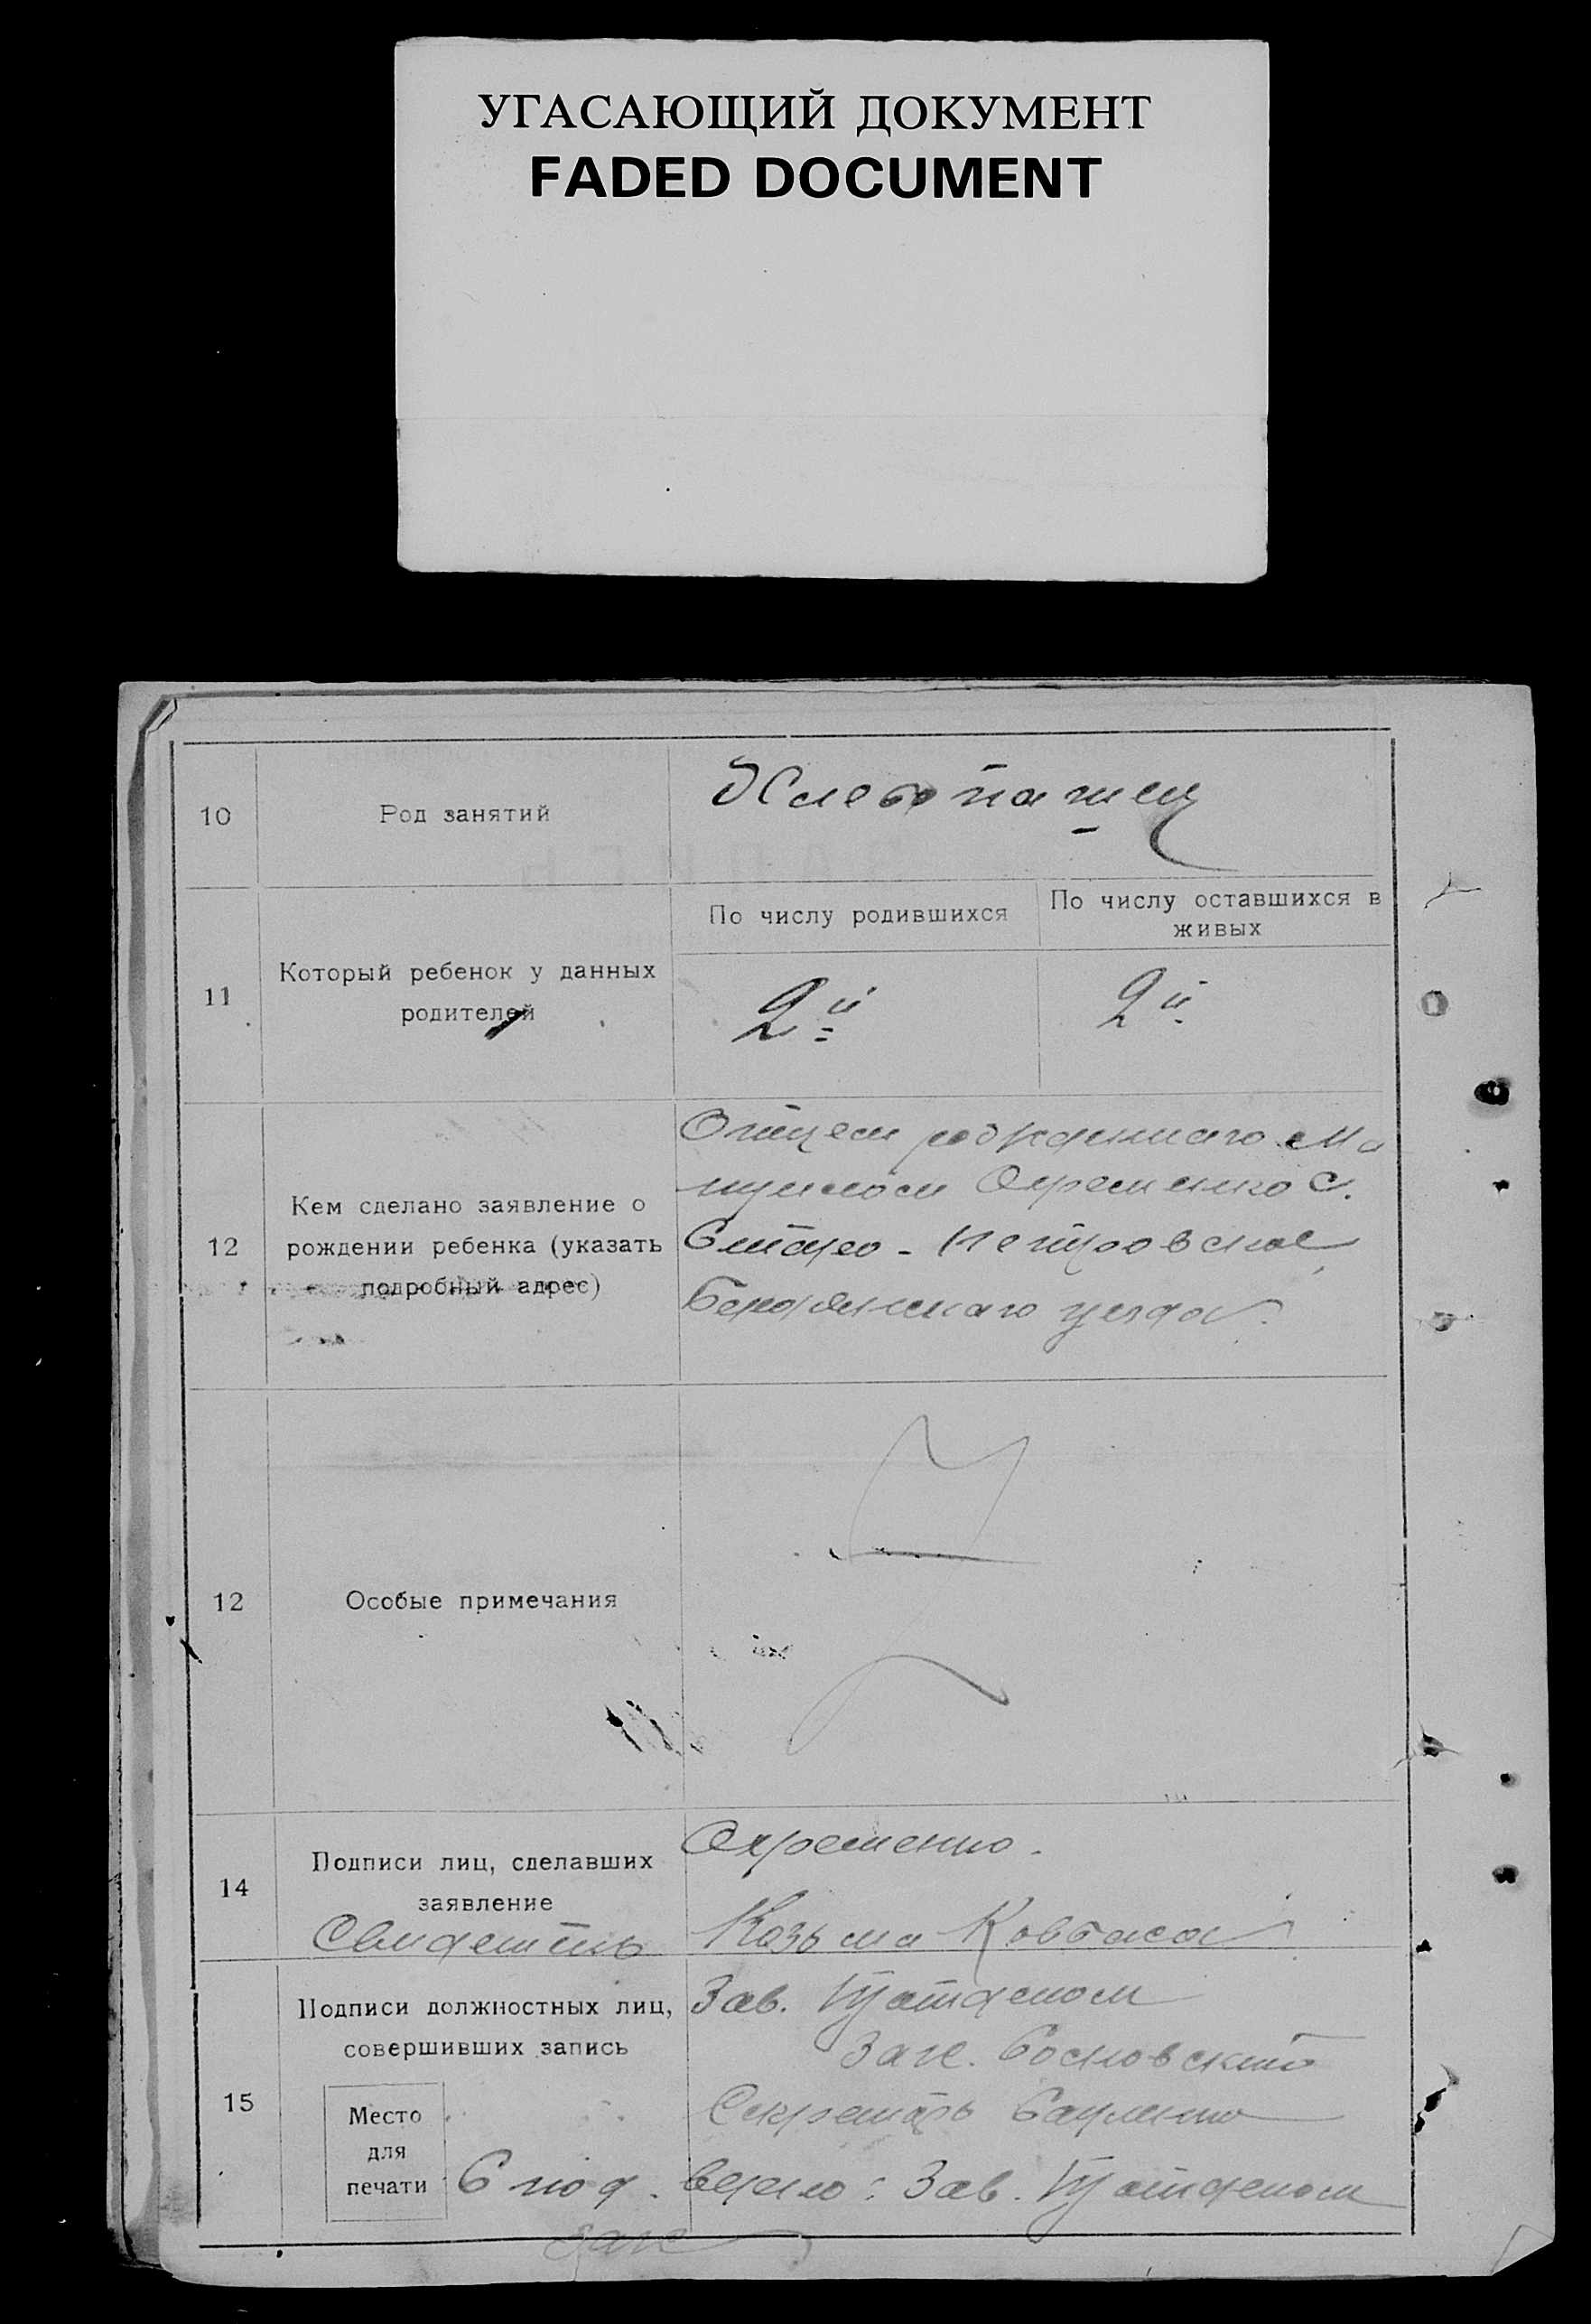 УГАСАЮЩИЙ ДОКУМЕНТ
FADED DOCUMENT
10
Род занятий
Хлебопашец
11
Который ребенок у данных
родителей
По числу родившихся
По числу оставшихся в
живых
2й
2й
12
Кем сделано заявление о
рождении ребенка (указать
подробный адрес)
Отцем рожденнаго
Охременко с.
Старо-Петровское
Бердянскаго уезда
12
Особые примечания
14
Подписи лиц, сделавших
заявление
Свидетель
Охременко.
Козьма Ковбаса
15
Подписи должностных лиц,
совершивших запись
Место
для
печати
Зав. П/отделом
Загс. Сосновский
Секретарь
С под. верно: Зав. П/отделом
Загс